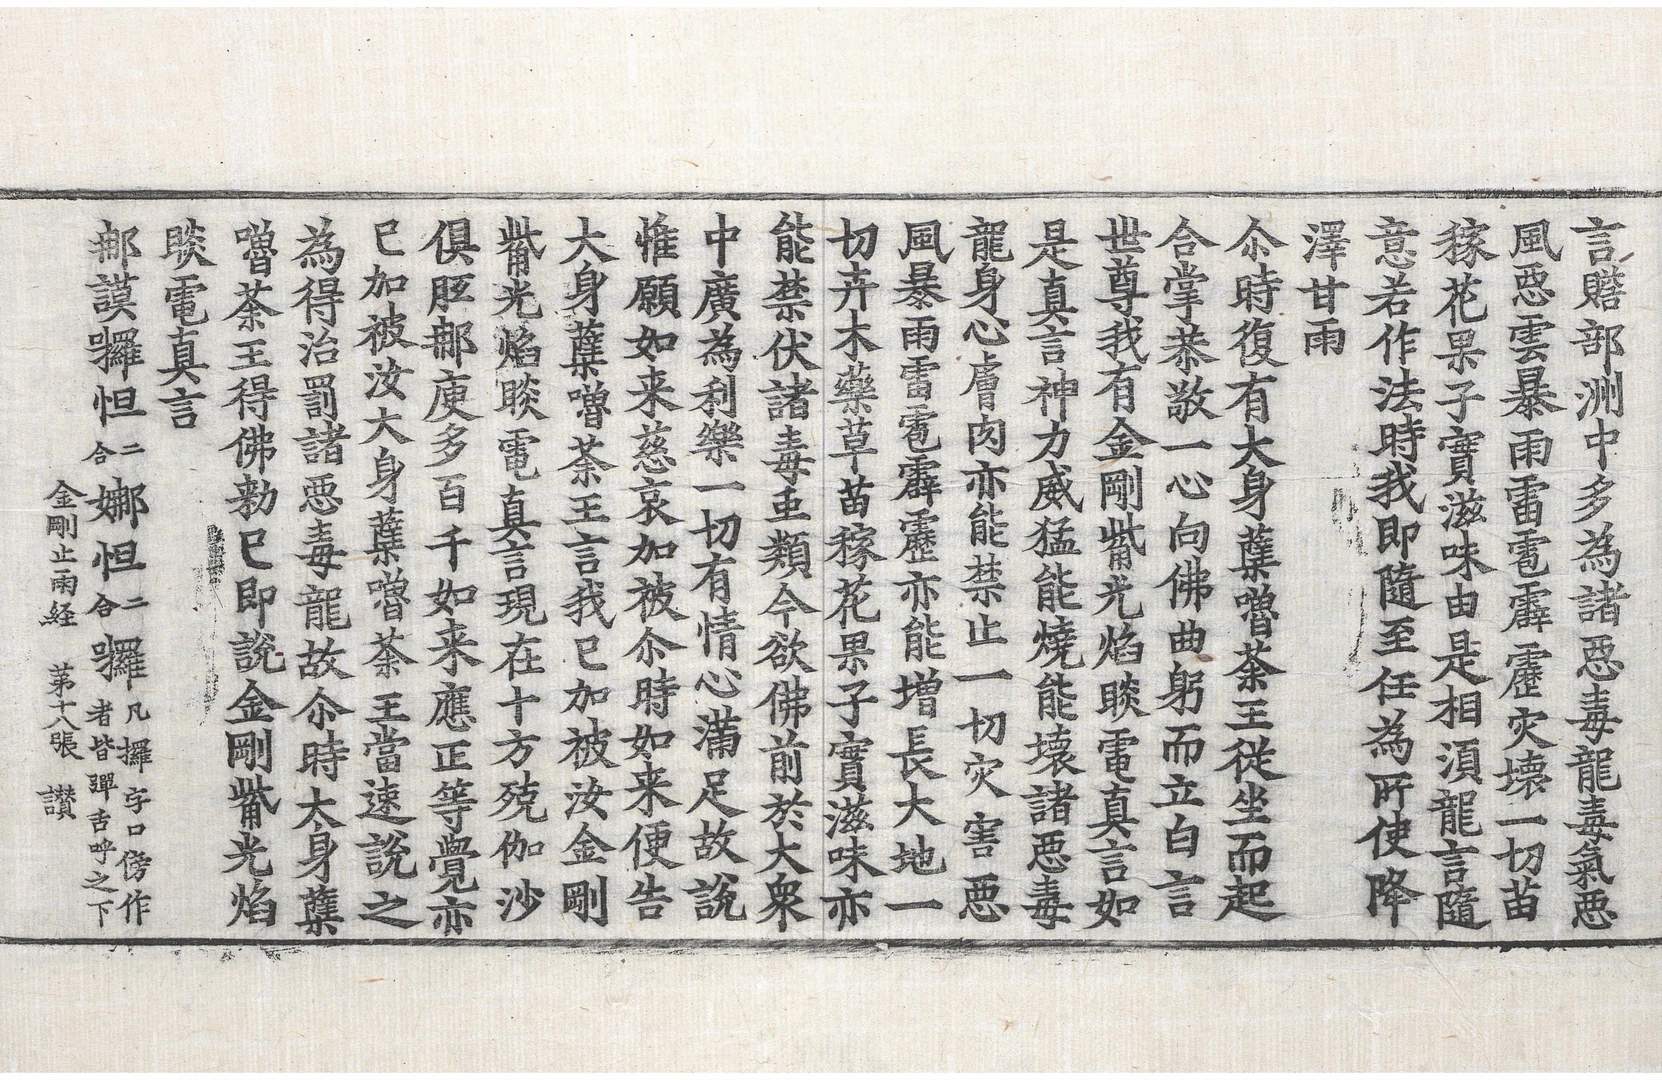 言贍部洲中多為諸惡毒龍毒氣惡
風惡雲暴雨雷雹霹靂灾壊一切苗
稼花果子實滋味由是相湏龍言隨
意若作法時我即隨至任為所使降
澤甘雨
尒時復有大身蘖嚕荼王従坐而起
合掌恭敬一心向佛曲躬而立白言
世尊我有金剛觜光焰㷋電真言如
是真言神力威猛能燒能壊諸惡毒
龍身心膚肉亦能禁止一切灾害惡
風暴雨雷雹霹靂亦能增長大地一
切卉木藥草苗稼花果子實滋味亦
能禁伏諸毒䖝類今欲佛前於大衆
中廣為利樂一切有情心滿足故說
惟願如来慈哀加被尒時如来便告
大身蘖嚕荼王言我已加被汝金剛
觜光焰㷋電真言現在十方殑伽沙
俱胝那庾多百千如来應正等覺亦
已加被汝大身蘖嚕荼王當速說之
為得治罰諸惡毒龍故尒時大身蘖
嚕荼王得佛勑已即說金剛觜光焰
㷋電真言
那謨囉怛二合娜怛二合囉凡囉字口傍作者皆彈舌呼之下
金剛止雨経 第十八張 讃